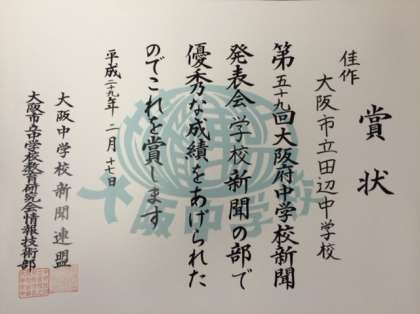 賞状
佳作
大阪市立田辺中学校
第五十九回大阪府中学校新聞
発表会学校新聞の部で
優秀な成績をあげられた
のでこれを賞します
平成二十九年二月十七日
大阪中学校新聞連盟
大阪市立中学校教育研究会情報技術部
大阪中学校